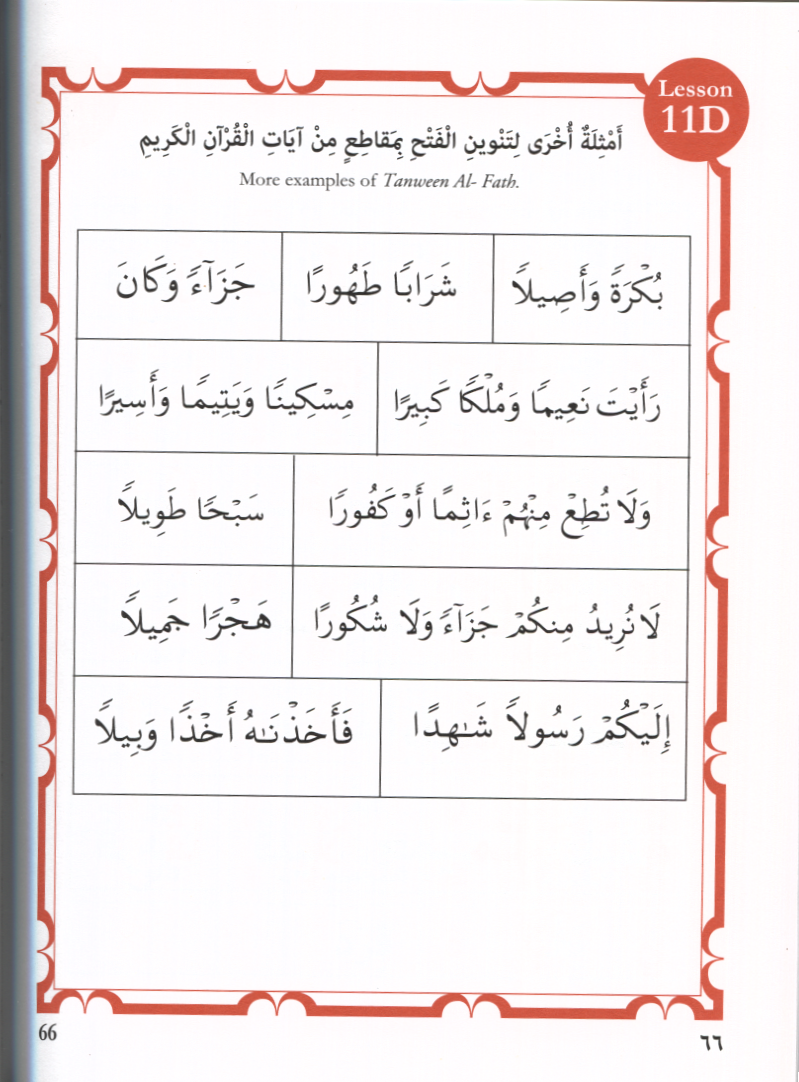 Lesson
11D
أَمْثِلَةٌ أُخْرَى لِتَنْوِينِ الْفَتْحِ بِمَقَاطِعٍ مِنْ آيَاتِ الْقُرْآنِ الْكَرِيمِ
More examples of Tanween Al- Fath.
بُكْرَةً وَأَصِيلاً
شَرَابًا طَهُورًا
جَزَآءً وَكَانَ
رَأَيْتَ نَعِيمًا وَمُلْكًا كَبِيرًا
مِسْكِينًا وَيَتِيمًا وَأَسِيرًا
وَلَا تُطِعْ مِنْهُمْ ءَاثِمًا أَوْ كَفُورًا
سَبْحًا طَوِيلاً
لَا نُرِيدُ مِنكُمْ جَزَآءً وَلَا شُكُورًا
هَجْرًا جَمِيلاً
إِلَيْكُمْ رَسُولاً شَـٰهِدًا
فَأَخَذْنَـٰهُ أَخْذًا وَبِيلاً
66
٦٦